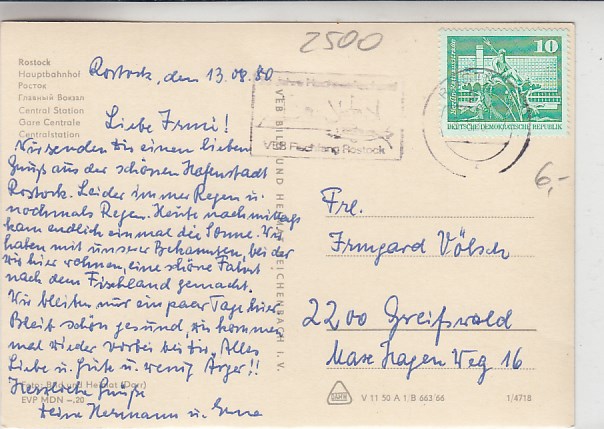 2500
Rostock
Hauptbahnhof
Росток
Главный Вокзал
Central Station
Gare Centrale
Centralstation
Rostock, den 13.08.80
Liebe Irmi!
Wir senden dir einen lieben
Gruß aus der schönen Hafenstadt
Rostock. Leider immer Regen u.
nochmals Regen. Heute nachmittags
kam endlich einmal die Sonne. Wir
haben mit unserer Bekannten, bei der
wir hier wohnen, eine schöne Fahrt
nach dem Fischland gemacht.
Wir bleiben nur ein paar Tage hier
Bleib schön gesund, wir kommen
mal wieder vorbei bei dir. Alles
Liebe u. Gute u. wenig Ärger!!
Herzliche Grüße
deine Hermann u. Erna
Foto: Bild und Heimat (Dorr)
EVP MDN –.20
VEB BILD UND HEIMAT REICHENBACH I. V.
VEB Fischfang Rostock
10
DEUTSCHE DEMOKRATISCHE REPUBLIK
6,-
Frl.
Irmgard Völsch
2200 Greifswald
Max Hagen Weg 16
V 11 50 A 1 B 663/66
1/4718